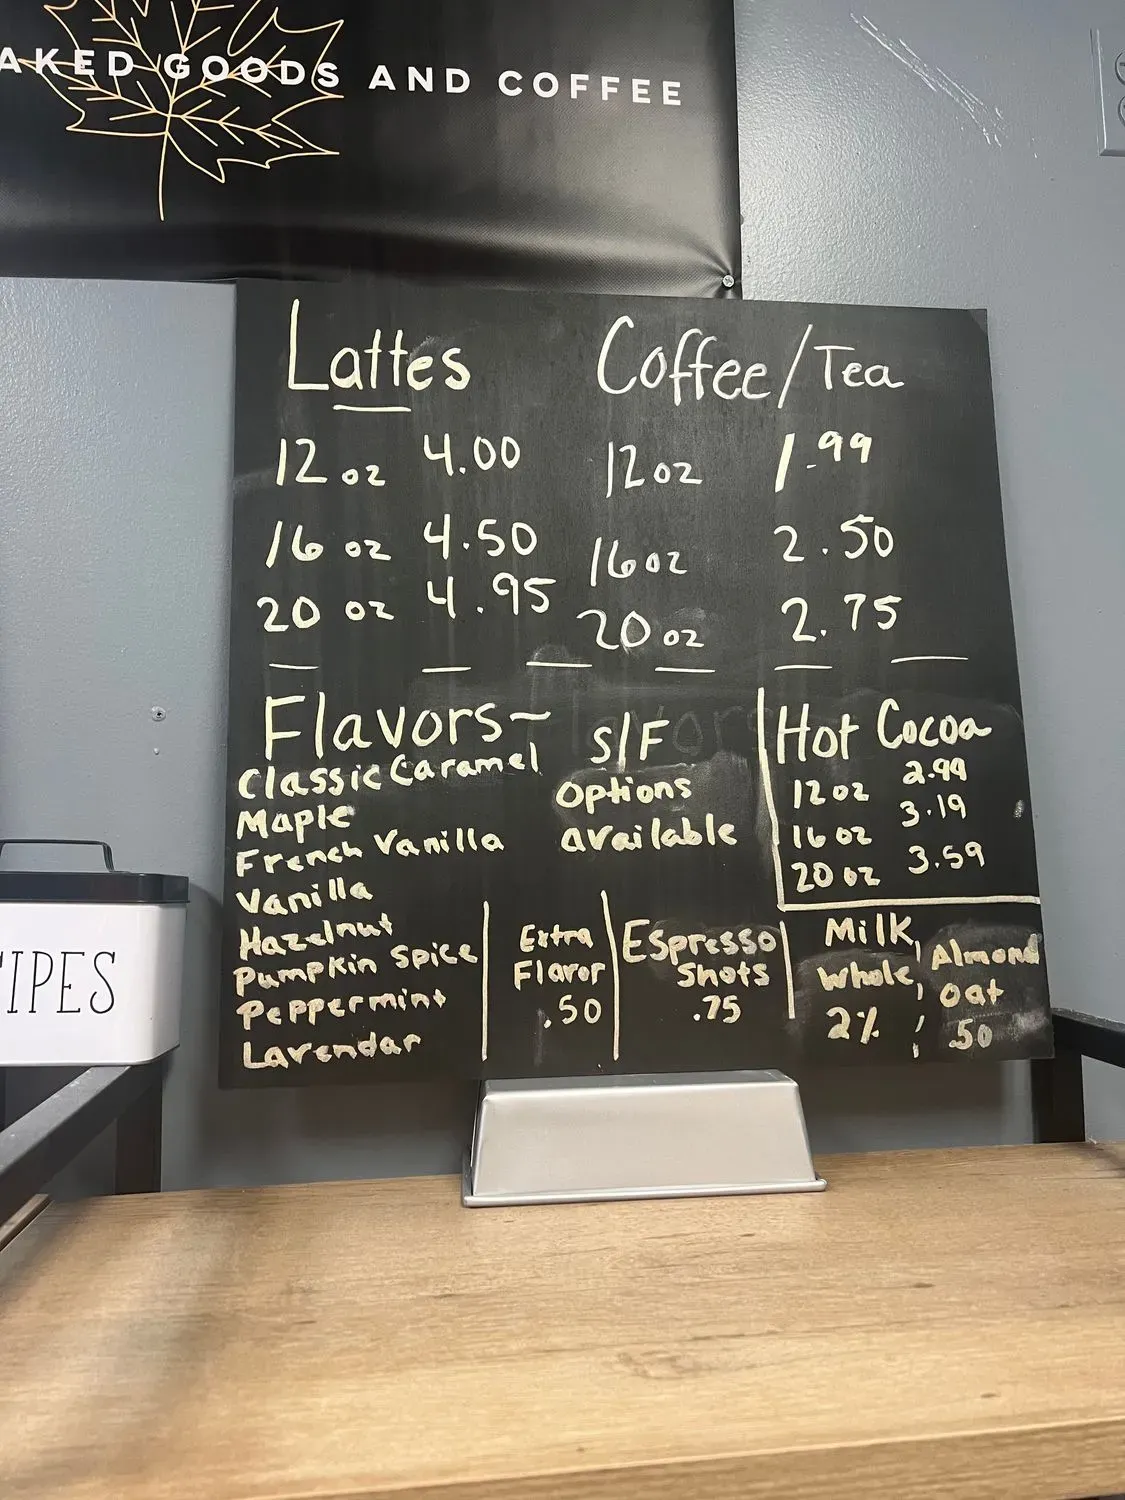 AKED GOODS AND COFFEE
Lattes
12 oz 4.00
16 oz 4.50
20 oz 4.95
Coffee/Tea
12 oz 1.99
16 oz 2.50
20 oz 2.75
Flavors~
Classic Caramel
Maple
French Vanilla
Vanilla
Hazelnut
Pumpkin Spice
Peppermint
Lavendar
S/F
options
available
Hot Cocoa
12 oz 2.99
16 oz 3.19
20 oz 3.59
Extra
Flavor
.50
Espresso
Shots
.75
Milk,
Whole,
2%
Almond
oat
.50
IPES